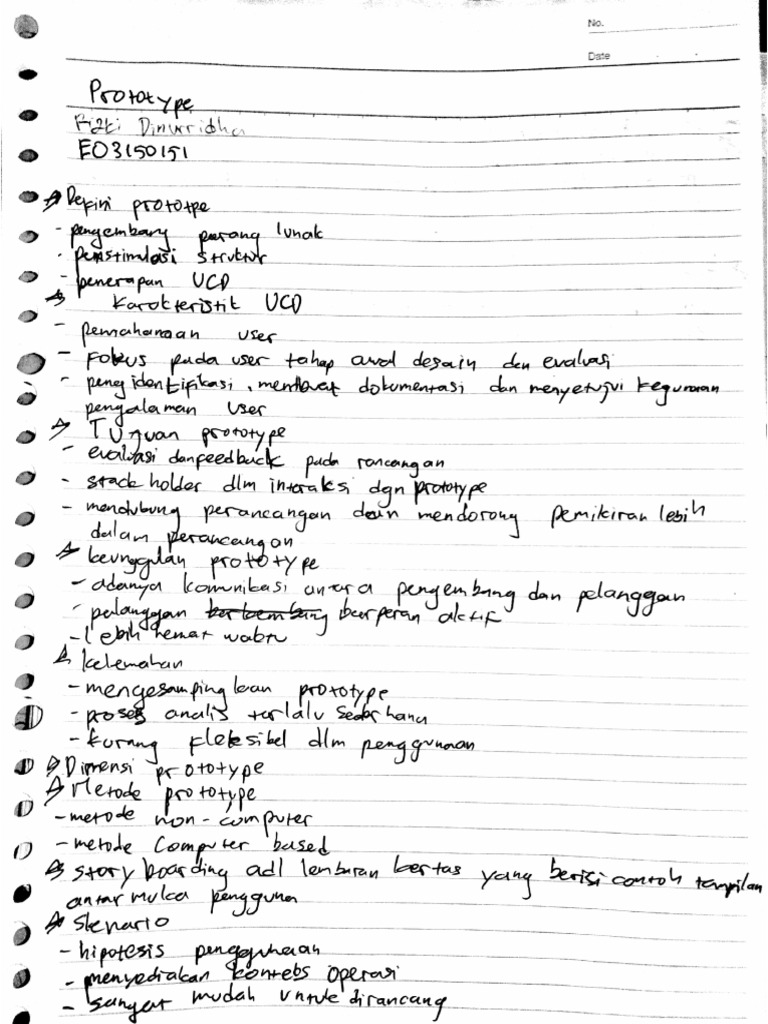 No.
Date
Prototype
Rizki
E03150151
Defini prototpe
- pengembang perang lunak
- penstimulasi struktur
- penerapan UCD
Karakteristik UCD
- pemahaman user
- Fokus pada user tahap awal desain dan evaluasi
- pengidentifikasi, membuat dokumentasi dan menyetujui kegunaan
pengalaman user
Tujuan prototype
- evaluasi dan feedback pada rancangan
- stack holder dlm interaksi dgn prototype
- mendubung perancangan dan mendorong pemikiran lebih
dalam perancangan
keunggulan prototype
- adanya komunikasi antara pengembang dan pelanggan
- pelanggan berperan aktif
- lebih hemat waktu
kelemahan
- mengesampingkan prototype
- proses analis terlalu sederhana
- kurang fleksibel dlm penggunaan
Dimensi prototype
Metode prototype
- metode non-computer
- metode Computer based
story boarding adl lembaran kertas yang berisi contoh tampilan
antar muka pengguna
Skenario
- hipotesis penggunaan
- menyediakan konteks operasi
- sangat mudah untuk dirancang